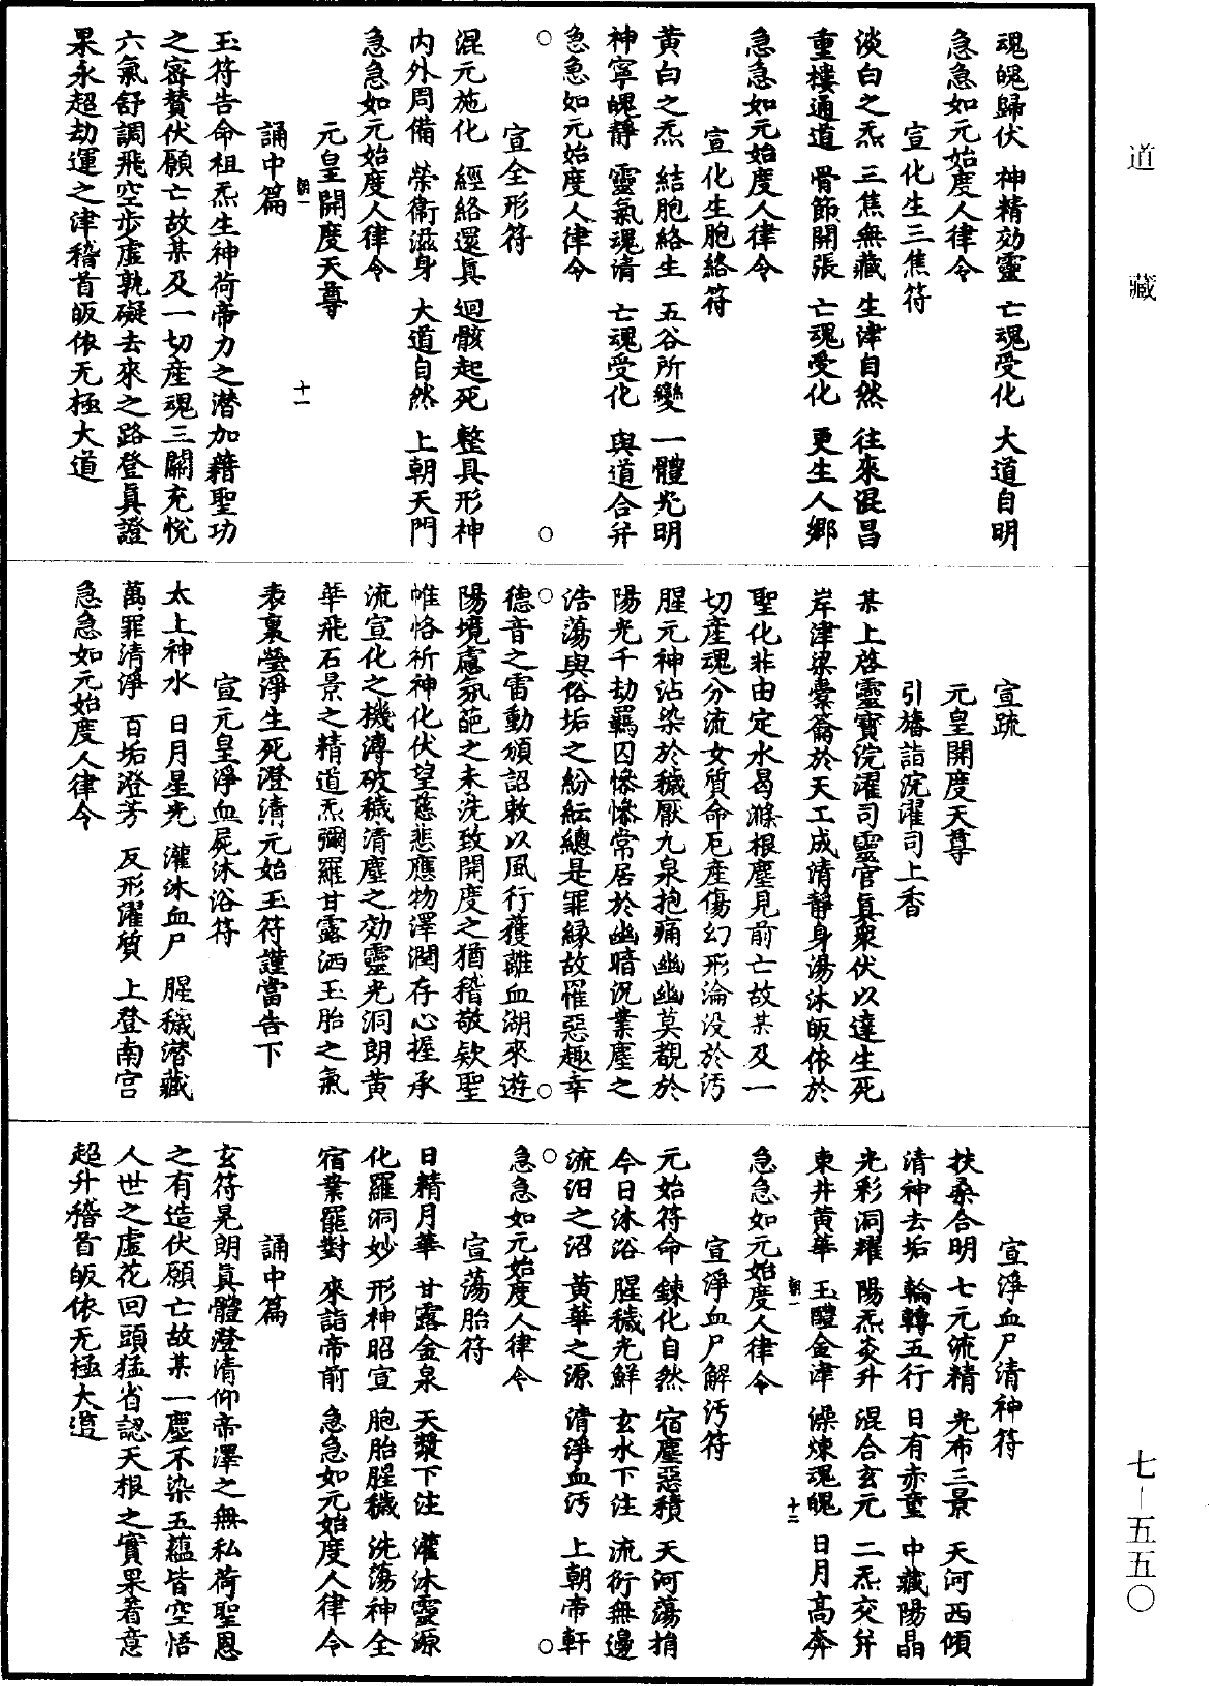 道藏
七—五五〇
魂魄歸伏　神精効靈　亡魂受化　大道自明
急急如元始度人律令
宣化生三焦符
淡白之炁　三焦無藏　生津自然　往來混昌
重樓通道　骨節開張　亡魂受化　更生人鄉
急急如元始度人律令
宣化生胞絡符
黃白之炁　結胞絡生　五谷所變　一體光明
神寧魄靜　靈氣魂清　亡魂受化　與道合并
急急如元始度人律令
○　○
宣全形符
混元施化　經絡還真　迴骸起死　整具形神
內外周備　榮衛滋身　大道自然　上朝天門
急急如元始度人律令
元皇開度天尊
朝一　十一
誦中篇
玉符告命祖炁生神荷帝力之潛加藉聖功
之密贊伏願亡故某及一切產魂三關充悅
六氣舒調飛空步虛孰礙去來之路登真證
果永超劫運之津稽首皈依无極大道
宣疏
元皇開度天尊
引旛詣浣濯司上香
某上啓靈寶浣濯司靈官真衆伏以達生死
岸津梁橐籥於天工成清靜身湯沐皈依於
聖化非由定水曷滌根塵見前亡故某及一
切產魂分流女質命厄產傷幻形淪没於汚
腥元神沾染於穢厭九泉抱痛幽幽莫覩於
陽光千劫羈囚慘慘常居於幽暗況業塵之
浩蕩與俗垢之紛紜總是罪緣故罹惡趣幸
○　○
德音之雷動頒詔敕以風行獲離血湖來遊
陽境慮氛葩之未洗致開度之猶稽敬欵聖
帷恪祈神化伏望慈悲應物澤潤存心握承
流宣化之機溥破穢清塵之効靈光洞朗黃
華飛石景之精道炁彌羅甘露洒玉胎之氣
表裏瑩淨生死澄清元始玉符謹當告下
宣元皇淨血屍沐浴符
太上神水　日月星光　灌沐血尸　腥穢潛藏
萬罪清淨　百垢澄芳　反形濯質　上登南宫
急急如元始度人律令
宣淨血尸清神符
扶桑合明　七元流精　光布三景　天河西傾
清神去垢　輪轉五行　日有赤童　中藏陽晶
光彩洞耀　陽炁炎升　混合玄元　二炁交并
東井黃華　玉醴金津　㵸煉魂魄　日月高奔
朝一　十二
急急如元始度人律令
宣淨血尸解汚符
元始符命　鍊化自然　宿塵惡積　天河蕩捐
今日沐浴　腥穢光鮮　玄水下注　流衍無邊
流汨之沼　黃華之源　清淨血汚　上朝帝軒
○　○
急急如元始度人律令
宣蕩胎符
日精月華　甘露金泉　天漿下注　灌沐靈源
化羅洞妙　形神昭宣　胞胎腥穢　洗蕩神全
宿業罷對　來詣帝前　急急如元始度人律令
誦中篇
玄符晃朗真體澄清仰帝澤之無私荷聖恩
之有造伏願亡故某一塵不染五蘊皆空悟
人世之虛花回頭猛省認天根之實果着意
超升稽首皈依无極大道